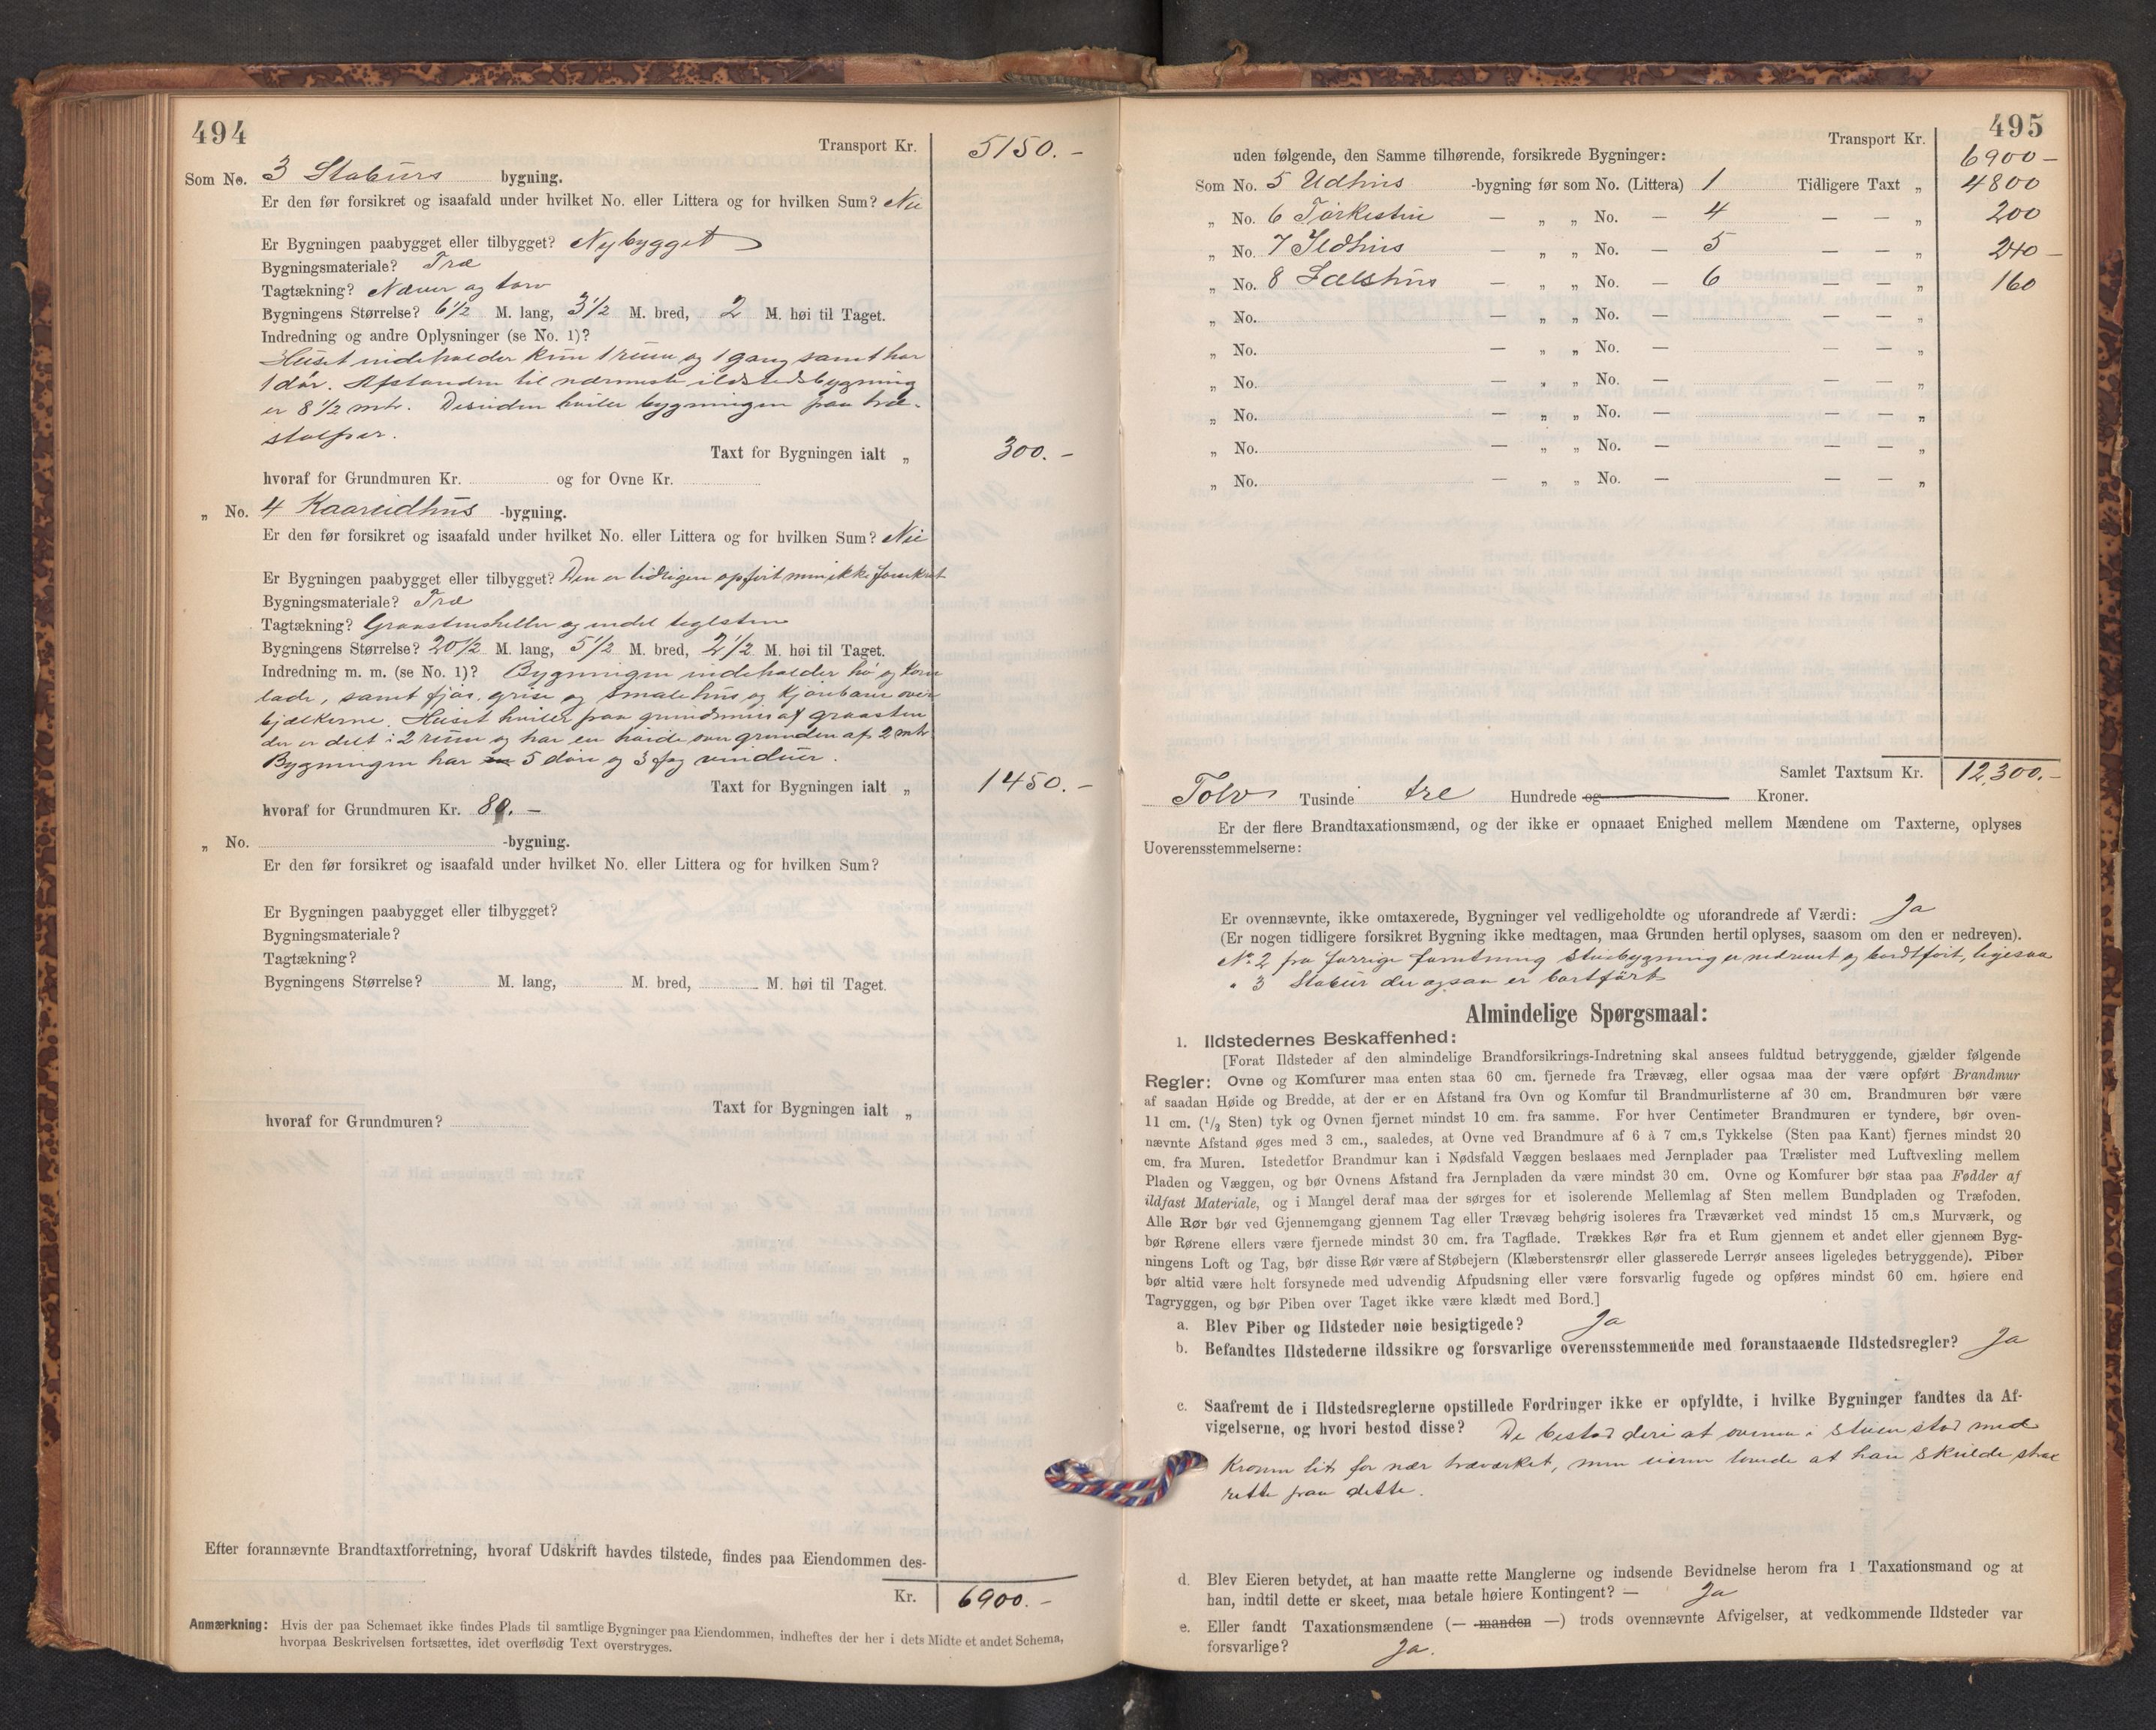 494
Transport Kr. 5150.-
Som No. 3 Stabürs bygning.
Er den før forsikret og isaafald under hvilket No. eller Littera og for hvilken Sum? Nei
Er Bygningen paabygget eller tilbygget? Nybygget
Bygningsmateriale? Træ
Tagtækning? Næver og torv
Bygningens Størrelse? 6 1/2 M. lang, 3 1/2 M. bred, 2 M. høi til Taget.
Indredning og andre Oplysninger (se No. 1)?
Hüset indeholder kün 1 rüm og 1 gang samt har
1 dør. Afstanden til nærmeste ildstedsbygning
er 8 1/2 mtr. Desüden hviler bygningen paa træ-
stolper.
Taxt for Bygningen ialt „ 300.-
hvoraf for Grundmuren Kr. og for Ovne Kr.
„ No. 4 -bygning.
Er den før forsikret og isaafald under hvilket No. eller Littera og for hvilken Sum? Nei
Er Bygningen paabygget eller tilbygget? Den er tidligere opført men ikke forsikret
Bygningsmateriale? Træ
Tagtækning? Graastensheller og endel teglsten
Bygningens Størrelse? 20 1/2 M. lang, 5 1/2 M. bred, 2 1/2 M. høi til Taget.
Indredning m. m. (se No. 1)? Bygningen indeholder hö og korn
lade, samt fjös, grise og smalehüs og kjörebane over
bjælkerne. Hüset hviler paa gründmür af graasten
der er delt i 2 rüm og har en höide over gründen af 2 mtr
Bygningen har 5 döre og 3 fag vindüer.
Taxt for Bygningen ialt „ 1450.-
hvoraf for Grundmuren Kr. 80.-
„ No. -bygning.
Er den før forsikret og isaafald under hvilket No. eller Littera og for hvilken Sum?
Er Bygningen paabygget eller tilbygget?
Bygningsmateriale?
Tagtækning?
Bygningens Størrelse? M. lang, M. bred, M. høi til Taget.
Taxt for Bygningen ialt „
hvoraf for Grundmuren?
Efter forannævnte Brandtaxtforretning, hvoraf Udskrift havdes tilstede, findes paa Eiendommen des-
Kr. 6900.-
Anmærkning: Hvis der paa Schemaet ikke findes Plads til samtlige Bygninger paa Eiendommen, indheftes der her i dets Midte et andet Schema,
hvorpaa Beskrivelsen fortsættes, idet overflødig Text overstryges.
495
Transport Kr. 6900-
uden følgende, den Samme tilhørende, forsikrede Bygninger:
Som No. 5 Udhüs -bygning før som No. (Littera) 1 Tidligere Taxt „ 4800
„ No. 6 Törkestüe — „ „ No. — 4 — — „ 200
„ No. 7 Ildhüs — „ „ No. — 5 — — „ 240-
„ No. 8 Sælshüs — „ „ No. — 6 — — „ 160
„ No. — „ „ No. — — — „
„ No. — „ „ No. — — — „
„ No. — „ „ No. — — — „
„ No. — „ „ No. — — — „
„ No. — „ „ No. — — — „
„ No. — „ „ No. — — — „
Samlet Taxtsum Kr. 12,300.-
Tolv Tusinde tre Hundrede og Kroner.
Er der flere Brandtaxationsmænd, og der ikke er opnaaet Enighed mellem Mændene om Taxterne, oplyses
Uoverensstemmelserne:
Er ovennævnte, ikke omtaxerede, Bygninger vel vedligeholdte og uforandrede af Værdi: Ja
(Er nogen tidligere forsikret Bygning ikke medtagen, maa Grunden hertil oplyses, saasom om den er nedreven).
No. 2 fra forrige forretning Stüebygning er nedrevet og bortfört, ligesaa
" 3 Stabür der ogsaa er bortfört
Almindelige Spørgsmaal:
1. Ildstedernes Beskaffenhed:
[Forat Ildsteder af den almindelige Brandforsikrings-Indretning skal ansees fuldtud betryggende, gjælder følgende
Regler: Ovne og Komfurer maa enten staa 60 cm. fjernede fra Trævæg, eller ogsaa maa der være opført Brandmur
af saadan Høide og Bredde, at der er en Afstand fra Ovn og Komfur til Brandmurlisterne af 30 cm. Brandmuren bør være
11 cm. (1/2 Sten) tyk og Ovnen fjernet mindst 10 cm. fra samme. For hver Centimeter Brandmuren er tyndere, bør oven-
nævnte Afstand øges med 3 cm., saaledes, at Ovne ved Brandmure af 6 à 7 cm.s Tykkelse (Sten paa Kant) fjernes mindst 20
cm. fra Muren. Istedetfor Brandmur kan i Nødsfald Væggen beslaaes med Jernplader paa Trælister med Luftvexling mellem
Pladen og Væggen, og bør Ovnens Afstand fra Jernpladen da være mindst 30 cm. Ovne og Komfurer bør staa paa Fødder af
ildfast Materiale, og i Mangel deraf maa der sørges for et isolerende Mellemlag af Sten mellem Bundpladen og Træfoden.
Alle Rør bør ved Gjennemgang gjennem Tag eller Trævæg behørig isoleres fra Træværket ved mindst 15 cm.s Murværk, og
bør Rørene ellers være fjernede mindst 30 cm. fra Tagflade. Trækkes Rør fra et Rum gjennem et andet eller gjennem Byg-
ningens Loft og Tag, bør disse Rør være af Støbejern (Klæberstensrør eller glasserede Lerrør ansees ligeledes betryggende). Piber
bør altid være holt forsynede med udvendig Afpudsning eller være forsvarlig fugede og opføres mindst 60 cm. høiere end
Tagryggen, og bør Piben over Taget ikke være klædt med Bord.]
a. Blev Piber og Ildsteder nøie besigtigede? Ja
b. Befandtes Ildstederne ildssikre og forsvarlige overensstemmende med foranstaaende Ildstedsregler? Ja
c. Saafremt de i Ildstedsreglerne opstillede Fordringer ikke er opfyldte, i hvilke Bygninger fandtes da Af-
vigelserne, og hvori bestod disse? De bestod deri at ovnen i stüen stod med
Kronen lit for nær træværket, men eieren lovede at han skülde strax
rette paa dette.
d. Blev Eieren betydet, at han maatte rette Manglerne og indsende Bevidnelse herom fra 1 Taxationsmand og at
han, indtil dette er skeet, maa betale høiere Kontingent? — Ja
e. Eller fandt Taxationsmændene (— manden —) trods ovennævnte Afvigelser, at vedkommende Ildsteder var
forsvarlige? Ja.